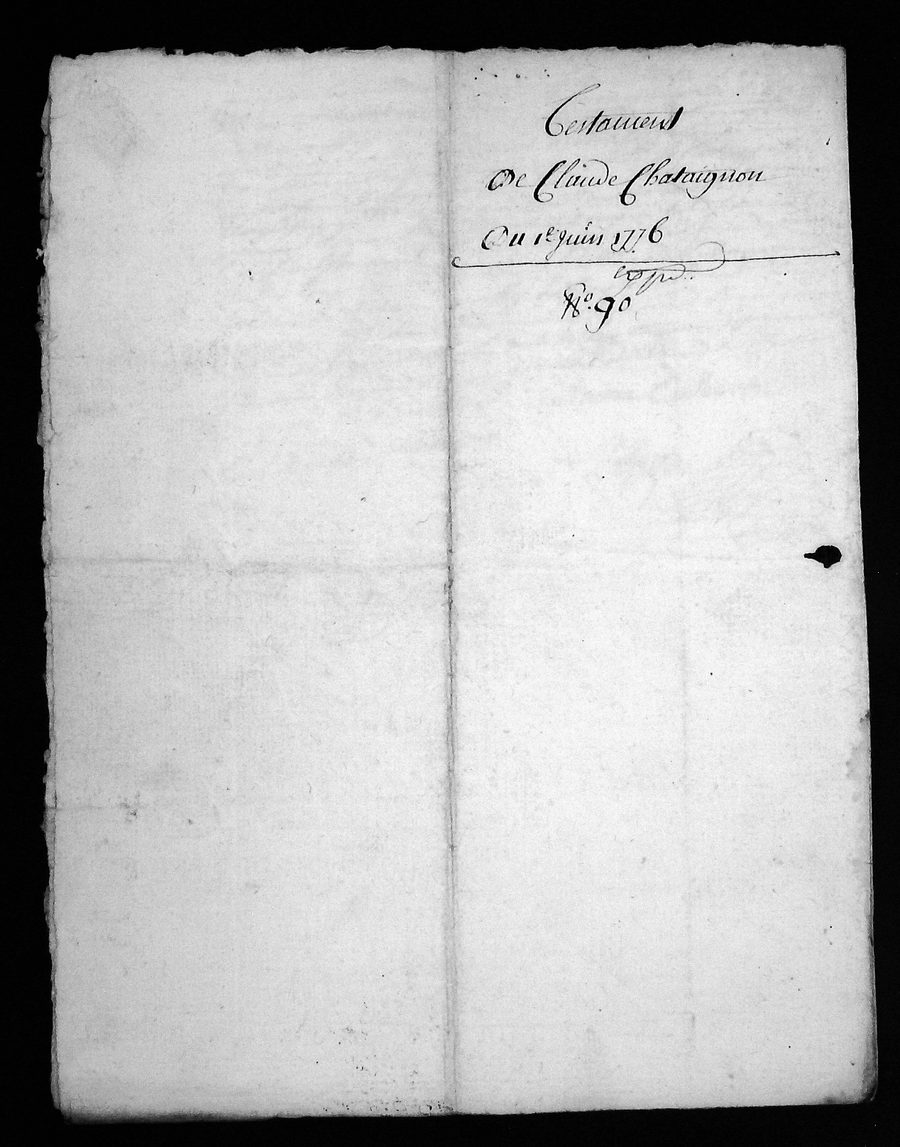 Testament
De Claude Chataignon
Du 1er Juin 1776
No. 90